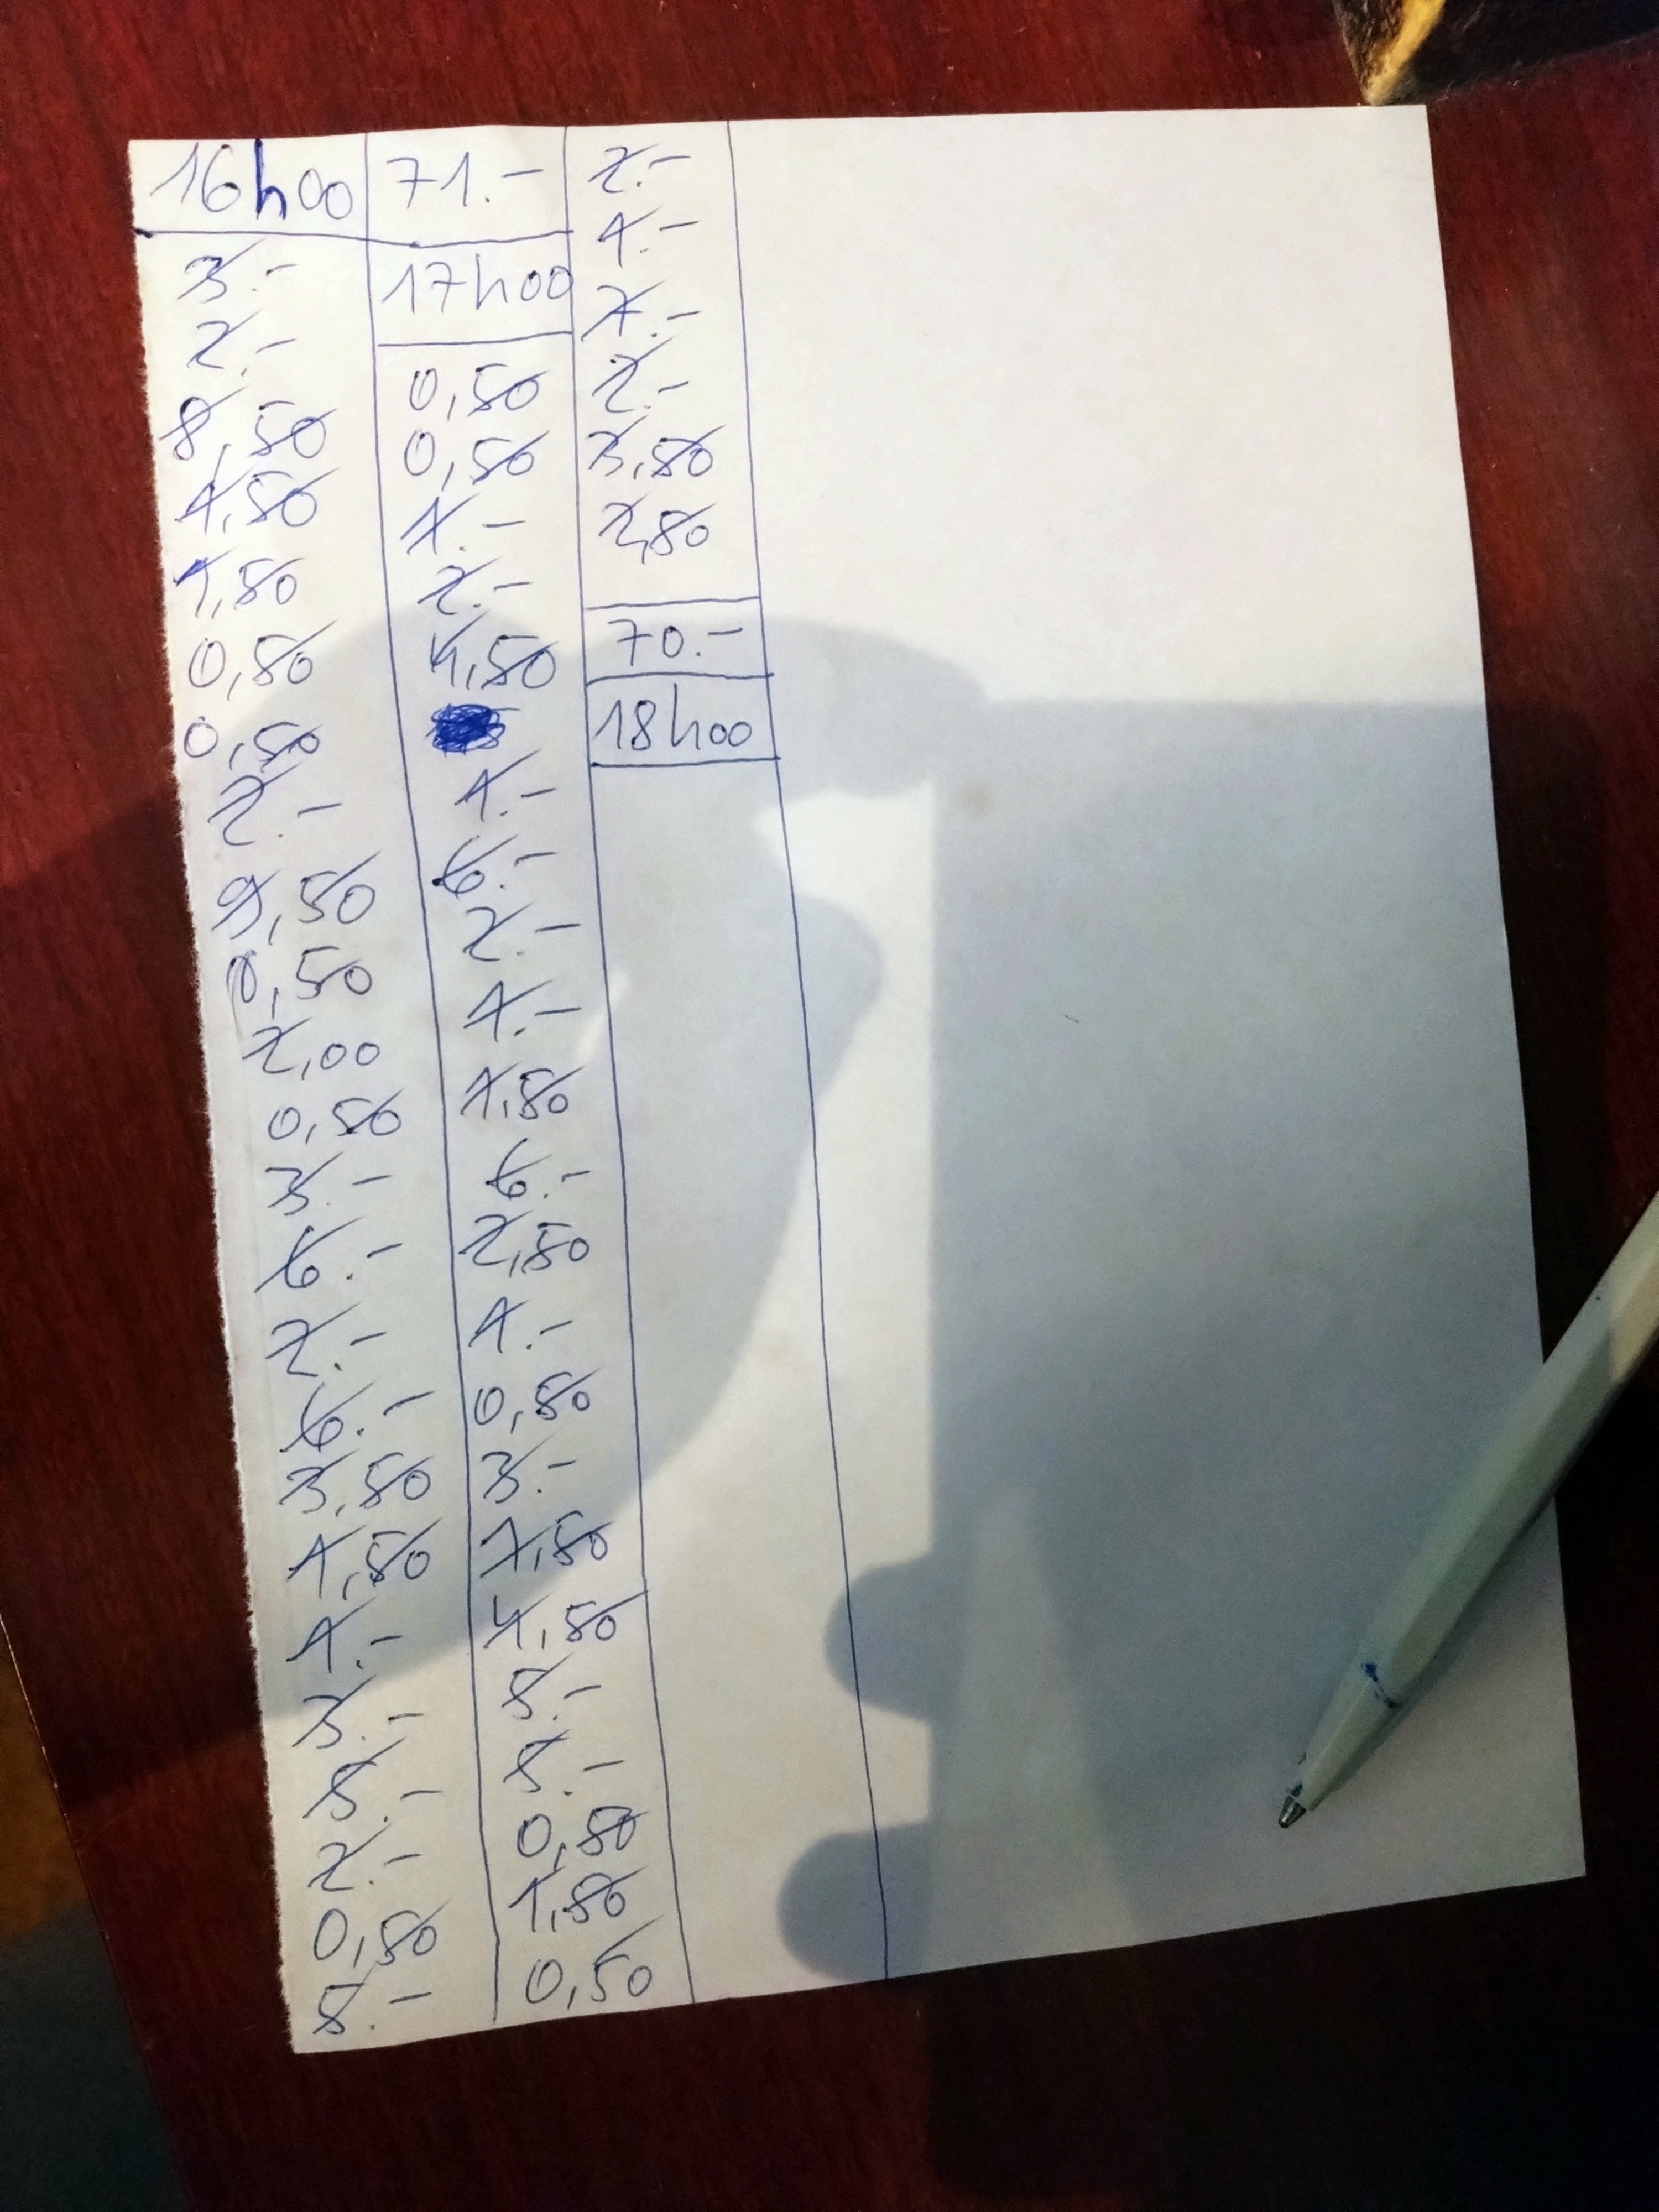 16h00
3.-
2.-
8,50
1,50
1,50
0,50
0,50
2.-
9,50
0,50
2,00
0,50
3.-
6.-
2.-
6.-
3,50
1,50
1.-
3.-
5.-
2.-
0,50
5.-
71.-
17h00
0,50
0,50
1.-
2.-
4,50
1.-
6.-
2.-
1.-
1,50
6.-
2,50
1.-
0,50
3.-
7,50
4,50
5.-
5.-
0,50
1,50
0,50
2.-
1.-
1.-
2.-
3,50
2,50
70.-
18h00